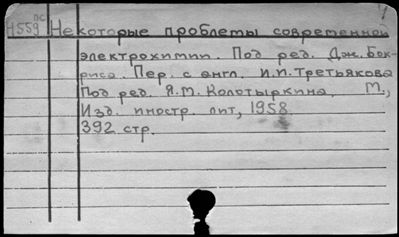 Н559 ПС Некоторые проблемы современной
электрохимии. Под ред. Дж. Бок-
риса. Пер. с англ. И.П. Третьякова
Под ред. Я.М. Колотыркина. М.,
Изд. иностр. лит, 1958.
392 стр.